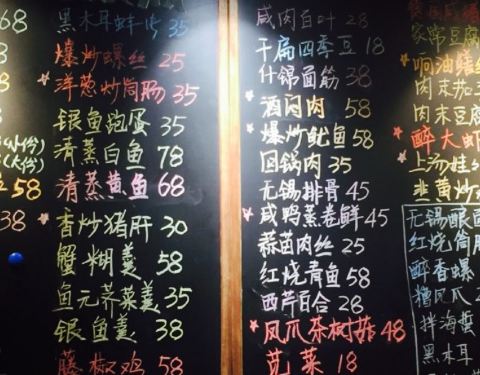 68
8
58
38
黑木耳蚌肉 35
爆炒螺丝 25
洋葱炒筒肠 35
银鱼跑蛋 35
清蒸白鱼 78
清蒸黄鱼 68
香炒猪肝 30
蟹糊羹 58
鱼元荠菜羹 35
银鱼羹 58
藤椒鸡 58
咸肉百叶 28
干扁四季豆 18
什锦面筋 38
酒闷肉 58
爆炒鱿鱼 58
回锅肉 35
无锡排骨 45
咸鸭蒸卷鲜 45
蒜苗肉丝 25
红烧青鱼 58
西芹百合 28
凤爪茶树菇 48
苋菜 18
家常豆腐
响油鳝
肉末茄
肉末豆腐
醉大虾
上汤娃
韭黄炒
无锡酿面
红烧筒肠
醉香螺
糟凤爪
拌海蜇
黑木耳